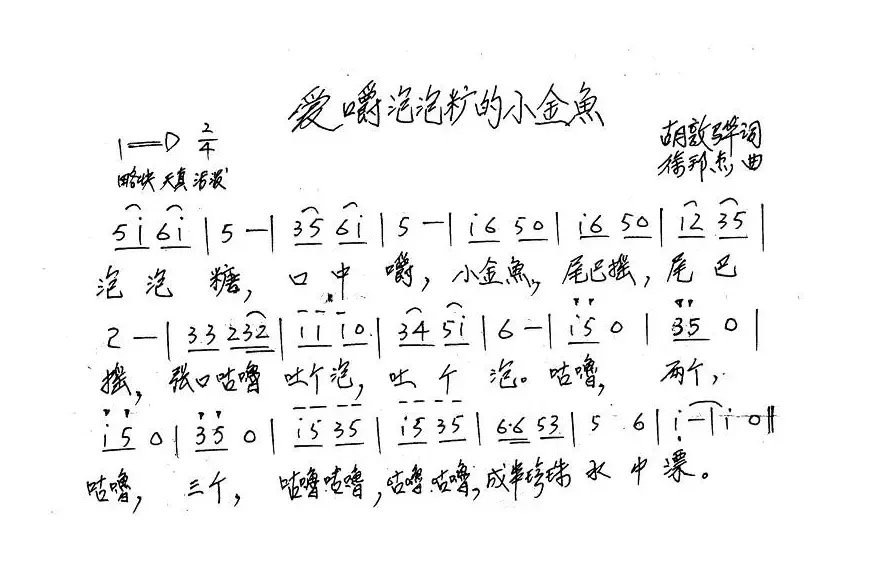 爱嚼泡泡糖的小金魚
1=D 2/4
胡敦骅词
略快 天真 活泼
徐邦杰曲
5i 6i | 5 — | 35 6i | 5 — | i6 50 | i6 50 | i2 35 |
泡 泡 糖， 口 中 嚼，小金魚，尾巴摇，尾 巴
2 — | 33 232 | i i i0 | 34 5i | 6 — | i5 0 | 35 0 |
摇，张口咕噜 吐个泡，吐 个 泡。咕噜， 两个，
i5 0 | 35 0 | i5 35 | i5 35 | 6·6 53 | 5 6 | i — | i 0 ‖
咕噜， 三个， 咕噜咕噜，咕噜咕噜，成串珍珠 水 中 漂。